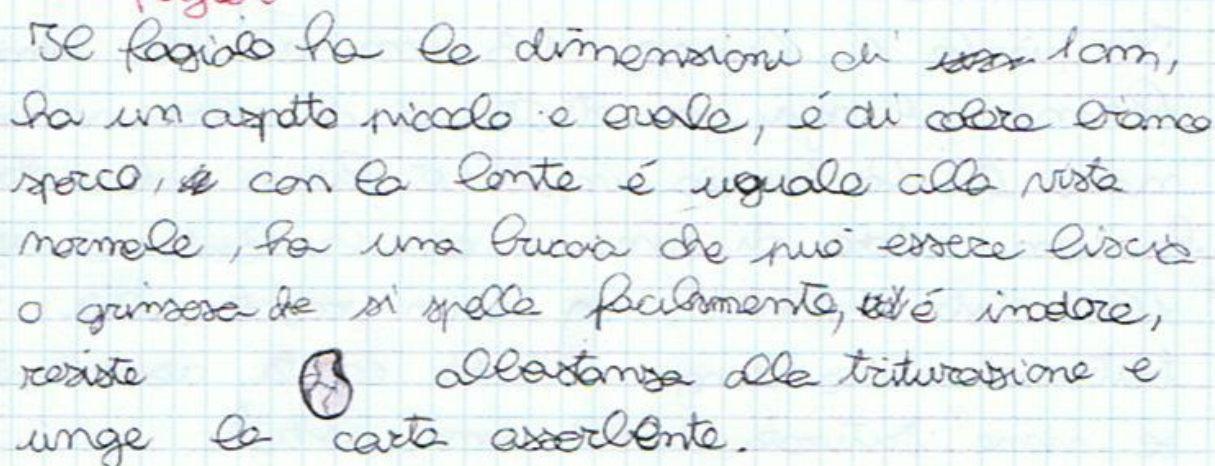 Il fagiolo ha le dimensioni di 1 cm,
ha un aspetto piccolo e ovale, é di colore bianco
sporco, con la lente é uguale alla vista
normale, ha una buccia che può essere liscia
o grinzosa che si spella facilmente, é inodore,
resiste abbastanza alla triturazione e
unge la carta assorbente.